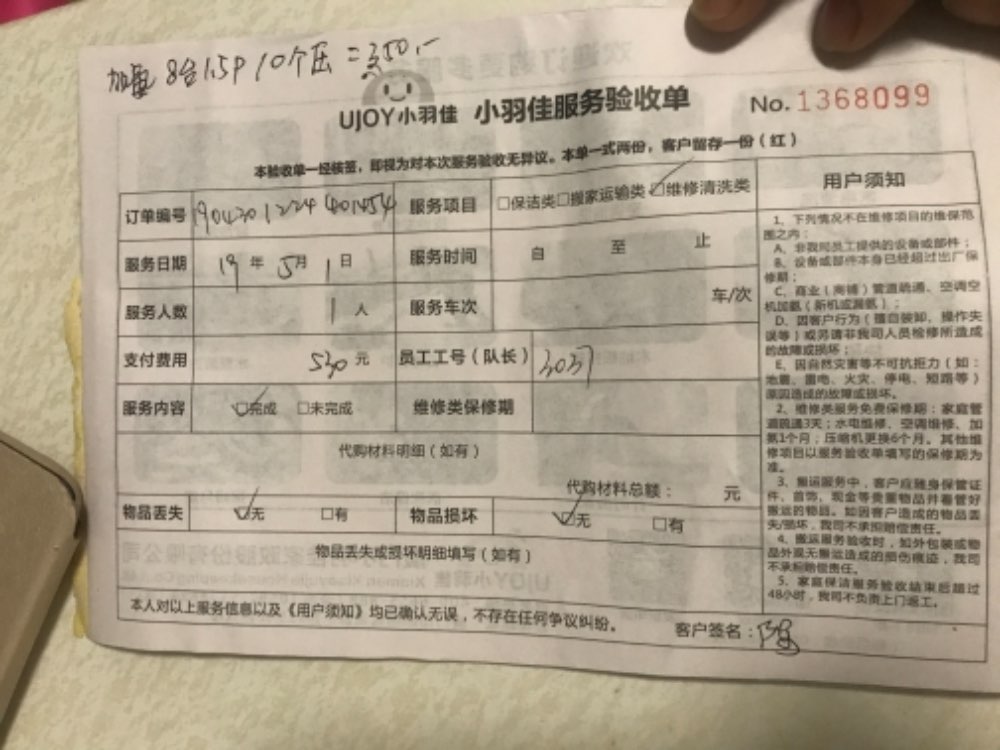 8台1.5P 10个压 =350.-
UJOY小羽佳 小羽佳服务验收单
No.1368099
本验收单一经核签，即视为对本次服务验收无异议。本单一式两份，客户留存一份（红）
订单编号 服务项目 □保洁类□搬家运输类☑维修清洗类
服务日期 19年5月1日 服务时间 自 至 止
服务人数 1人 服务车次 车/次
支付费用 530元 员工工号（队长） 3037
服务内容 ☑完成 □未完成 维修类保修期
代购材料明细（如有）
代购材料总额： 元
物品丢失 ☑无 □有 物品损坏 ☑无 □有
物品丢失或损坏明细填写（如有）
本人对以上服务信息以及《用户须知》均已确认无误，不存在任何争议纠纷。
客户签名：
用户须知
1、下列情况不在维修项目的维保范
围之内：
A、非我司员工提供的设备或部件；
B、设备或部件本身已经超过出厂保
修期；
C、商业（商铺）管道疏通、空调空
机加氨（新机或漏氨）；
D、因客户行为（擅自装卸，操作失
误等）或另请非我司人员检修所造成
的故障或损坏；
E、因自然灾害等不可抗拒力（如：
地震、雷电、火灾、停电、短路等）
原因造成的故障或损坏。
2、维修类服务免费保修期：家庭管
道疏通3天；水电维修、空调维修、加
氨1个月；压缩机更换6个月。其他维
修项目以服务验收单填写的保修期为
准。
3、搬运服务中，客户应随身保管证
件、首饰，现金等贵重物品并看管好
搬运的物品。如因客户造成的物品丢
失/损坏，我司不承担赔偿责任。
4、搬运服务验收时，如外包装或物
品外观无搬运造成的损伤痕迹，我司
不承担赔偿责任。
5、家庭保洁服务验收结束后超过
48小时，我司不负责上门返工。